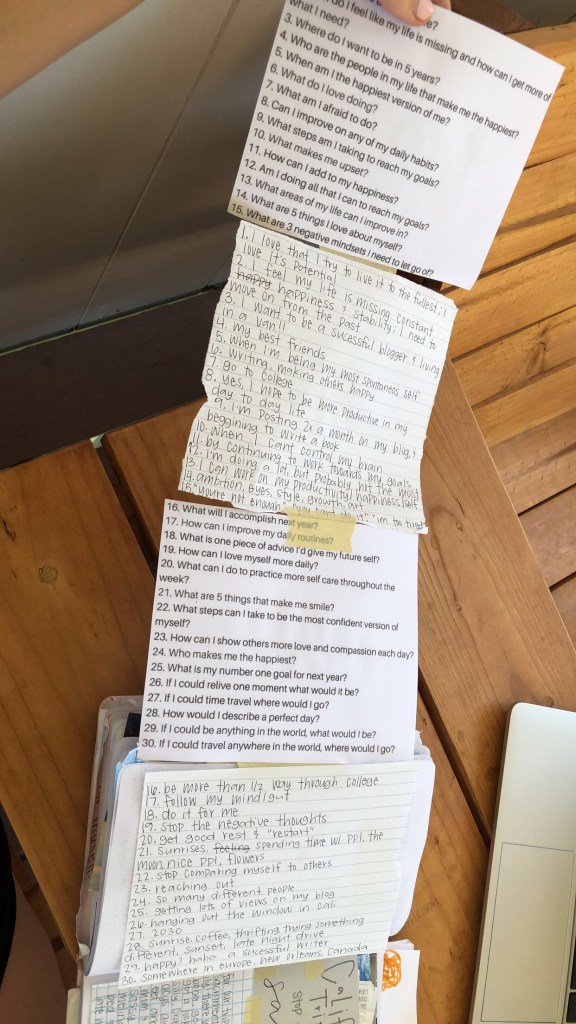 do I feel like my life is missing and how can I get more of
what I need?
3. Where do I want to be in 5 years?
4. Who are the people in my life that make me the happiest?
5. When am I the happiest version of me?
6. What do I love doing?
7. What am I afraid to do?
8. Can I improve on any of my daily habits?
9. What steps am I taking to reach my goals?
10. What makes me upset?
11. How can I add to my happiness?
12. Am I doing all that I can to reach my goals?
13. What areas of my life can I improve in?
14. What are 5 things I love about myself?
15. What are 3 negative mindsets I need to let go of?
1. I love that I try to live it to the fullest; I
love it's potential
2. I feel my life is missing constant
happy happiness & stability; I need to
move on from the past
3. I want to be a sucessful blogger & living
in a van!!
4. my best friends
5. when I'm being my most spontaneos self
6. writing, making others happy
7. go to college
8. yes, I hope to be more productive in my
day to day life
9. I'm posting 2x a month on my blog, &
beggining to write a book
10. when I can't control my brain
11. by continuing to work towards my goals
12. I'm doing a lot but probably not the most
13. I can work on my productivity/happiness/self
14. ambition, eyes, style, growth, art
15. "you're not enough"
16. What will I accomplish next year?
17. How can I improve my daily routines?
18. What is one piece of advice I'd give my future self?
19. How can I love myself more daily?
20. What can I do to practice more self care throughout the
week?
21. What are 5 things that make me smile?
22. What steps can I take to be the most confident version of
myself?
23. How can I show others more love and compassion each day?
24. Who makes me the happiest?
25. What is my number one goal for next year?
26. If I could relive one moment what would it be?
27. If I could time travel where would I go?
28. How would I describe a perfect day?
29. If I could be anything in the world, what would I be?
30. If I could travel anywhere in the world, where would I go?
16. be more than 1/2 way through college
17. follow my mind/gut
18. do it for me
19. stop the negative thoughts
20. get good rest & "restart"
21. sunrises, feeling spending time w/ ppl, the
moon, nice ppl, flowers
22. stop comparing myself to others
23. reaching out
24. so many different people
25. getting lots of views on my blog
26. hanging out the window in cali
27. 2030
28. sunrise, coffee, thrifting, trying something
different, sunset, late night drive
29. happy? haha a sucessful writer
30. somewhere in europe, new orleans, canada